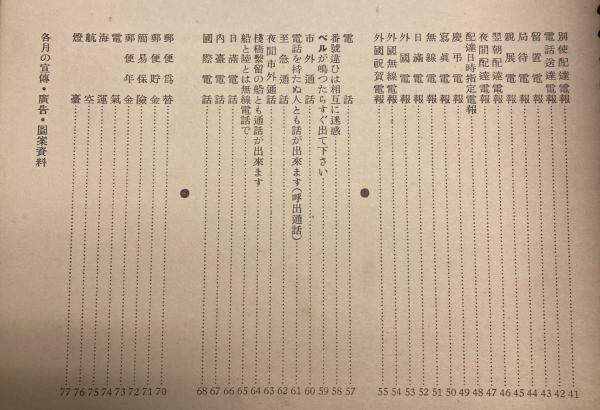 別使配達電報……41
電話送達電報……42
留置電報……43
局待電報……44
親展電報……45
翌朝配達電報……46
夜間配達電報……47
配達日時指定電報……48
慶弔電報……49
寫眞電報……50
無線電報……51
日滿電報……52
外國電報……53
外國無線電報……54
外國祝賀電報……55
●
電話……57
番號違ひは相互に迷惑……58
ベルが鳴つたらすぐ出て下さい……59
市外通話……60
電話を持たぬ人とも話が出來ます(呼出通話)……61
至急通話……62
夜間市外通話……63
棧橋繫留の船とも通話が出來ます……64
船と陸とは無線電話で……65
日滿電話……66
內臺電話……67
國際電話……68
●
郵便爲替……70
郵便貯金……71
簡易保險……72
郵便年金……73
電氣……74
海運……75
航空……76
燈臺……77
各月の宣傳・廣告・圖案資料